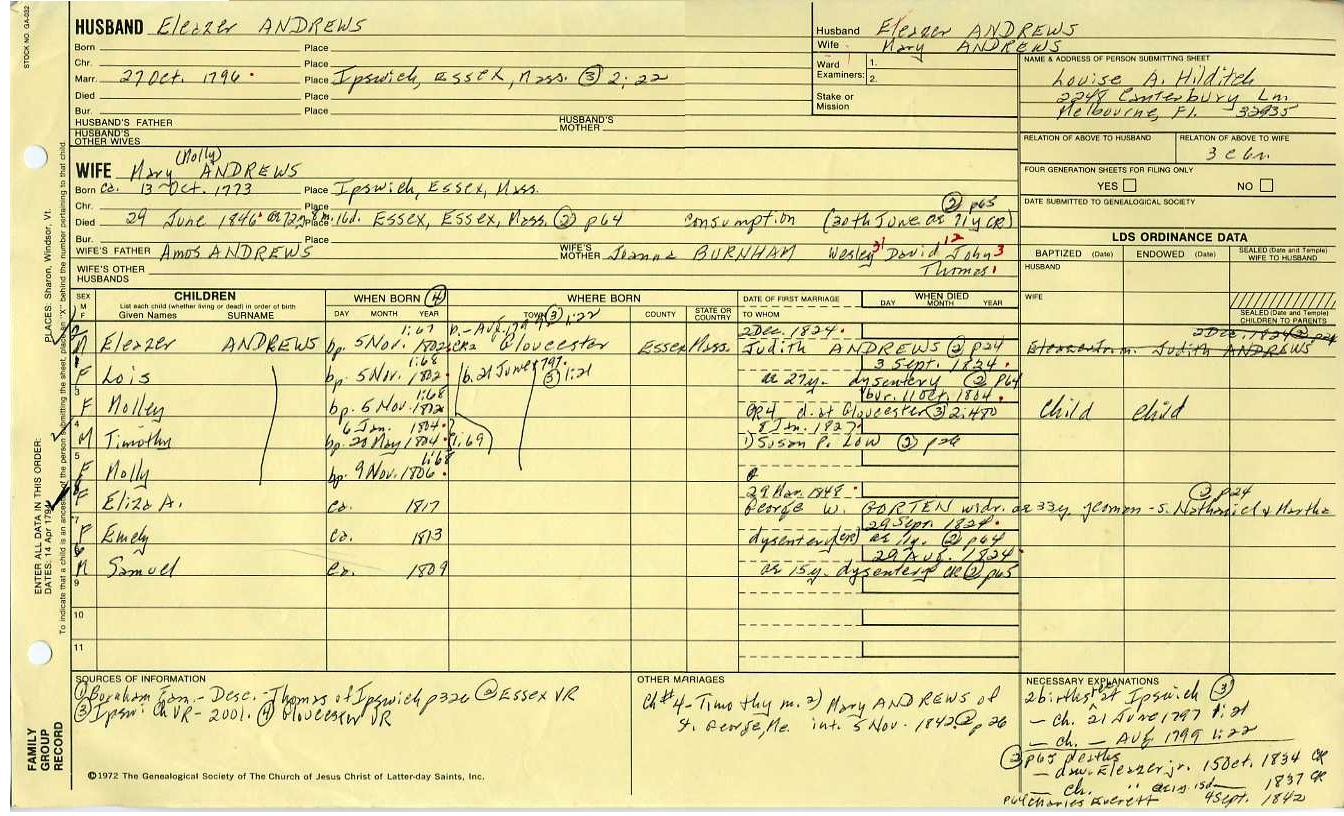 STOCK NO. GA-032
HUSBAND Eleazer ANDREWS
Born Place
Chr. Place
Marr. 27 Oct. 1796 Place Ipswich, Essex, Mass. ③ 2:22
Died Place
Bur. Place
HUSBAND'S FATHER HUSBAND'S MOTHER
HUSBAND'S OTHER WIVES
Husband Eleazer ANDREWS
Wife Mary ANDREWS
Ward Examiners: 1. 2.
Stake or Mission
NAME & ADDRESS OF PERSON SUBMITTING SHEET
Louise A. Hilditch
2248 Canterbury Ln
Melbourne, Fl. 32935
RELATION OF ABOVE TO HUSBAND RELATION OF ABOVE TO WIFE
3 c 6r.
FOUR GENERATION SHEETS FOR FILING ONLY
YES NO
DATE SUBMITTED TO GENEALOGICAL SOCIETY
(Molly)
WIFE Mary ANDREWS
Born ca. 13 Oct. 1773 Place Ipswich, Essex, Mass.
Chr. Place ② p65
Died 29 June 1846 ae 72y 8m. 16d. Place Essex, Essex, Mass. ② p64 consumption (30th June ae 71y CR)
Bur. Place
WIFE'S FATHER Amos ANDREWS WIFE'S MOTHER Joanna BURNHAM Wesley 31 David 12 John 3
Thomas 1
WIFE'S OTHER HUSBANDS
LDS ORDINANCE DATA
BAPTIZED (Date) ENDOWED (Date) SEALED (Date and Temple) WIFE TO HUSBAND
HUSBAND
WIFE
SEALED (Date and Temple) CHILDREN TO PARENTS
SEX M F CHILDREN WHEN BORN ④ WHERE BORN DATE OF FIRST MARRIAGE WHEN DIED
List each child (whether living or dead) in order of birth
Given Names SURNAME DAY MONTH YEAR TOWN COUNTY STATE OR COUNTRY TO WHOM DAY MONTH YEAR
1:67 b. - Aug. 1799 ③ 1:22 2 Dec. 1824 2 Dec. 1824 ② p24
M Eleazer ANDREWS bp. 5 Nov. 1802 Gloucester Essex Mass. Judith ANDREWS ② p24 Eleazer Jr. m. Judith ANDREWS
1:68 3 Sept. 1824
F Lois bp. 5 Nov. 1802 b. 21 June 1797 ③ 1:21 ae 27y. dysentery ② p64
3 1:68 bur. 11 Oct. 1804
F Molley bp. 5 Nov. 1802 GR4 d. at Gloucester ③ 2:480 Child Child
4 6 Jan. 1804 8 Jan. 1827
M Timothy bp. 20 May 1804 1:69 1) Susan P. LOW ② p26
5 1:68
F Molly bp. 9 Nov. 1806
29 Mar. 1848 ② p24
F Eliza A. ca. 1817 George W. GORTEN widr. ae 33y. yeoman - s. Nathaniel & Martha
7 29 Sept. 1824
F Emely ca. 1813 dysentery (CR) ae 11y. ② p64
29 Aug. 1824
M Samuel ca. 1809 ae 15y. dysentery CR ② p65
9
10
11
SOURCES OF INFORMATION
① Burnham Fam. - Desc. - Thomas of Ipswich p326 ② Essex VR
③ Ipswich VR - 2001. ④ Gloucester VR
OTHER MARRIAGES
Ch #4 - Timothy m. 2) Mary ANDREWS of
St. George, Me. int. 5 Nov. 1842 ② p26
NECESSARY EXPLANATIONS
2 births rec at Ipswich ③
- ch. 21 June 1797 1:21
- ch. - Aug 1799 1:22
② p65 deaths
- dau. Eleazer jr. 15 Oct. 1834 CR
- ch. " 1837 CR
p64 Charles Everett 4 Sept. 1842
©1972 The Genealogical Society of The Church of Jesus Christ of Latter-day Saints, Inc.
FAMILY GROUP RECORD
ENTER ALL DATA IN THIS ORDER:
DATES: 14 Apr 1794
PLACES: Sharon, Windsor, Vt.
To indicate that a child is an ancestor of the person submitting the sheet, place an "X" behind the number pertaining to that child.